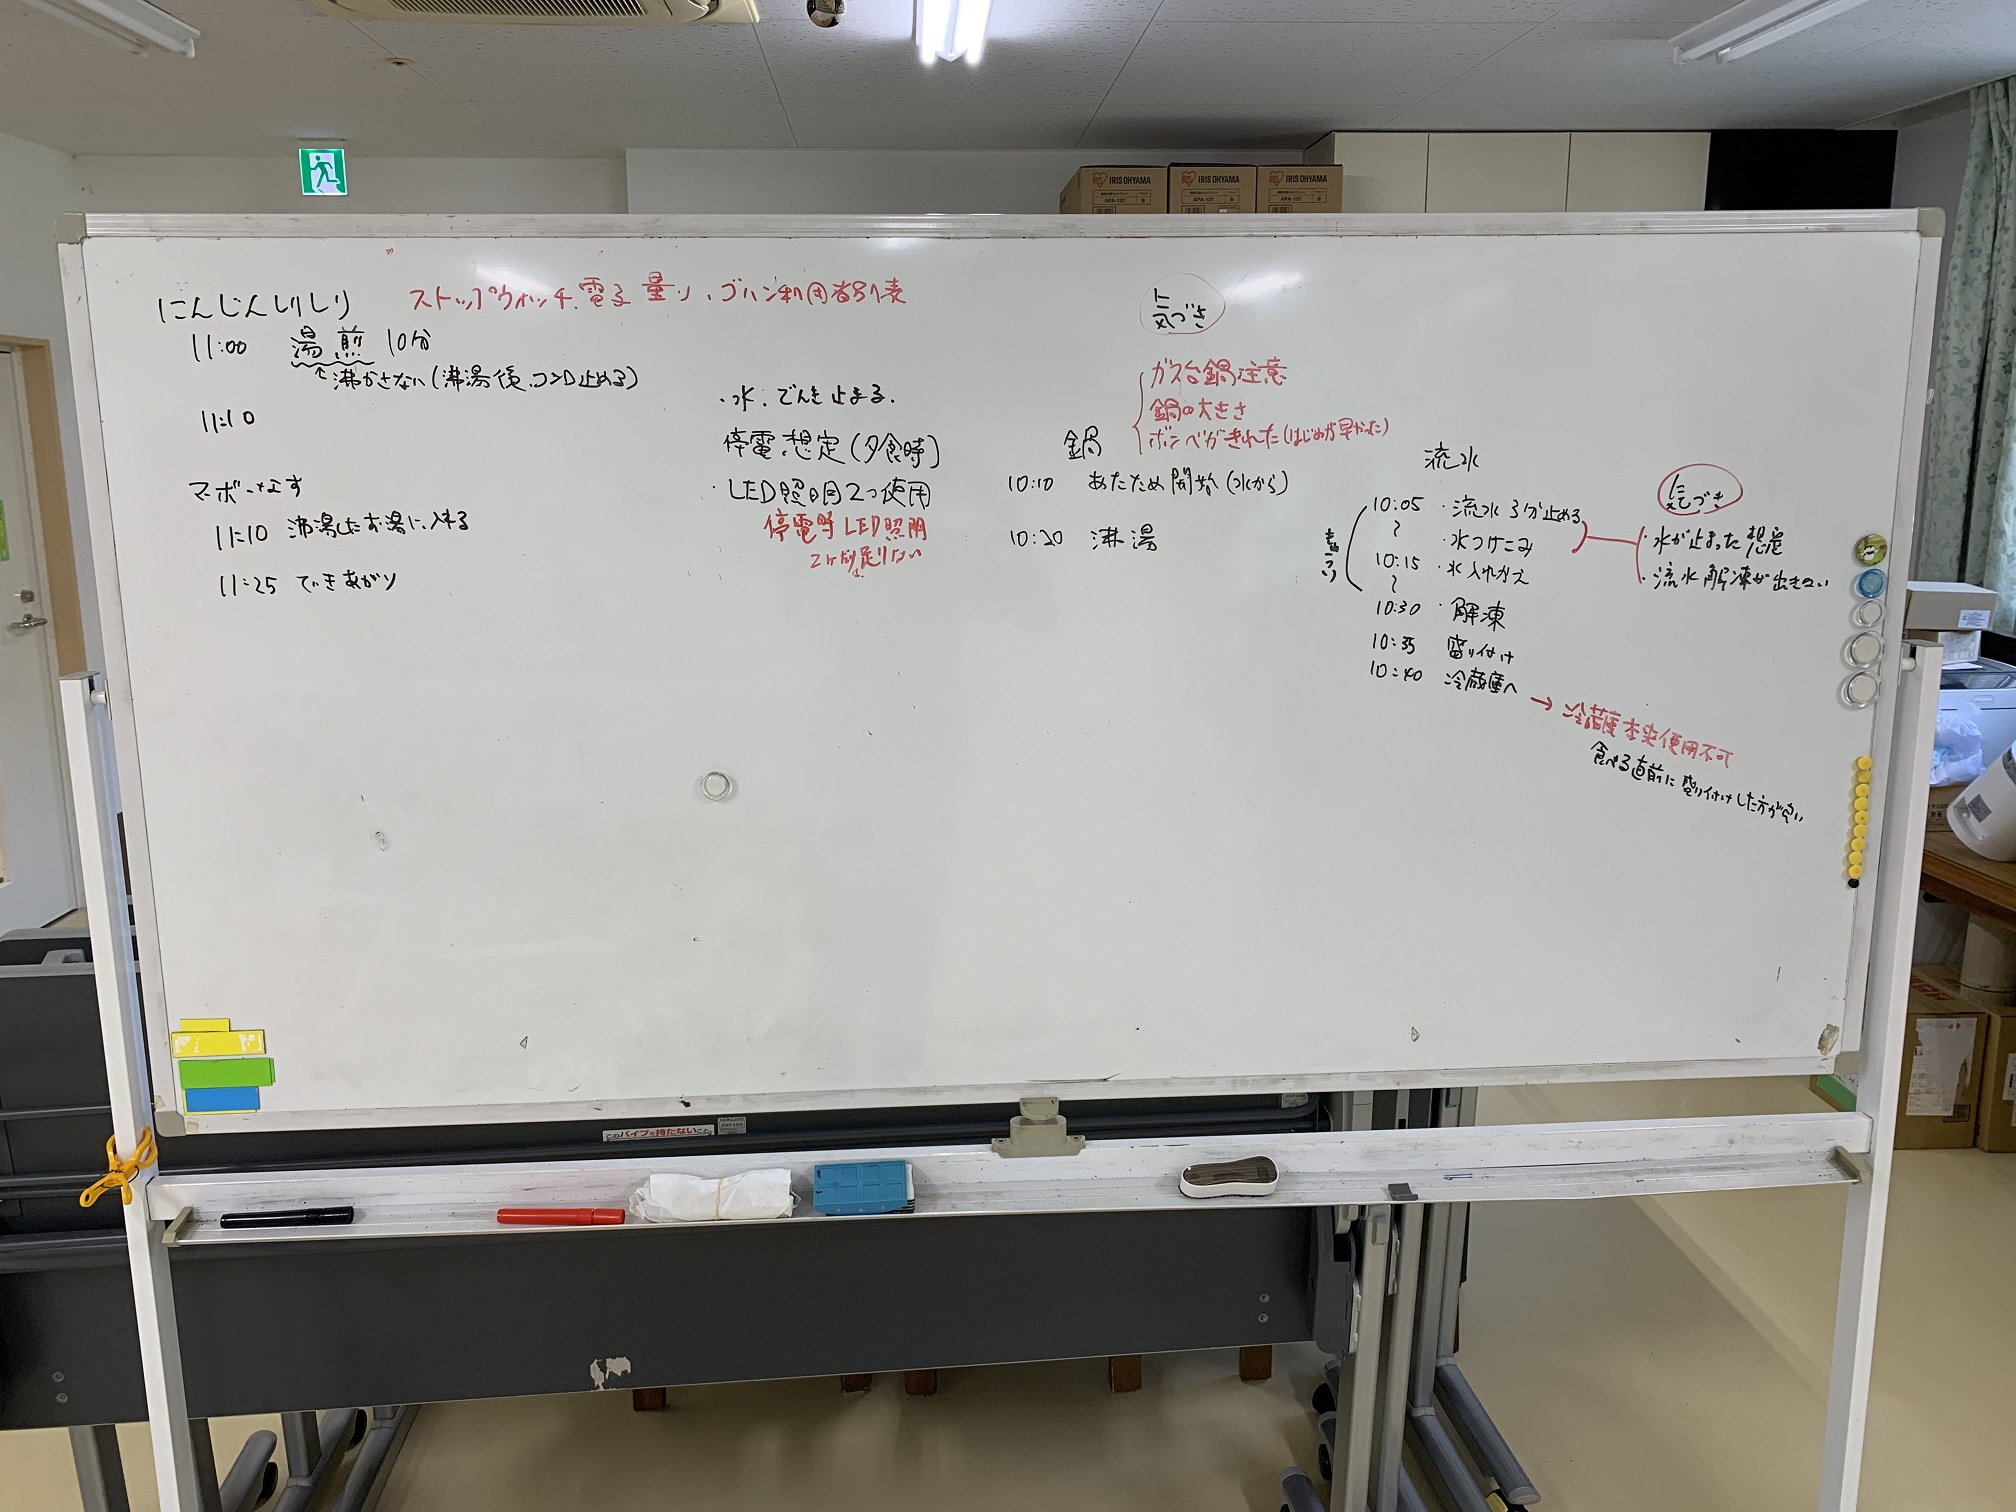 にんじんしりしり
ストップウォッチ、電子量り、ゴハン利用者別表
11:00 湯煎 10分
↑沸かさない(沸湯後、コンロ止める)
11:10
マーボーなす
11:10 沸湯したお湯に入れる
11:25 できあがり
・水、でんき止まる。
停電想定(夕食時)
・LED照明2つ使用
停電時LED照明
2ケだけ足りない
気づき
ガス台鍋注意
鍋の大きさ
ボンベがきれた(はじめが早かった)
鍋
10:10 あたため開始(水から)
10:20 沸湯
流水
10:05 ・流水3分止める
〜 ・水つけこみ
10:15 ・水入れかえ
〜
10:30 ・解凍
10:35 盛り付け
10:40 冷蔵庫へ
→冷蔵庫本来使用不可
食べる直前に盛り付けした方が良い
気づき
・水が止まった想定
・流水解凍が出きない
IRIS OHYAMA
APA-137
B
IRIS OHYAMA
APA-137
B
IRIS OHYAMA
APA-137
B
このパイプを持たないこと